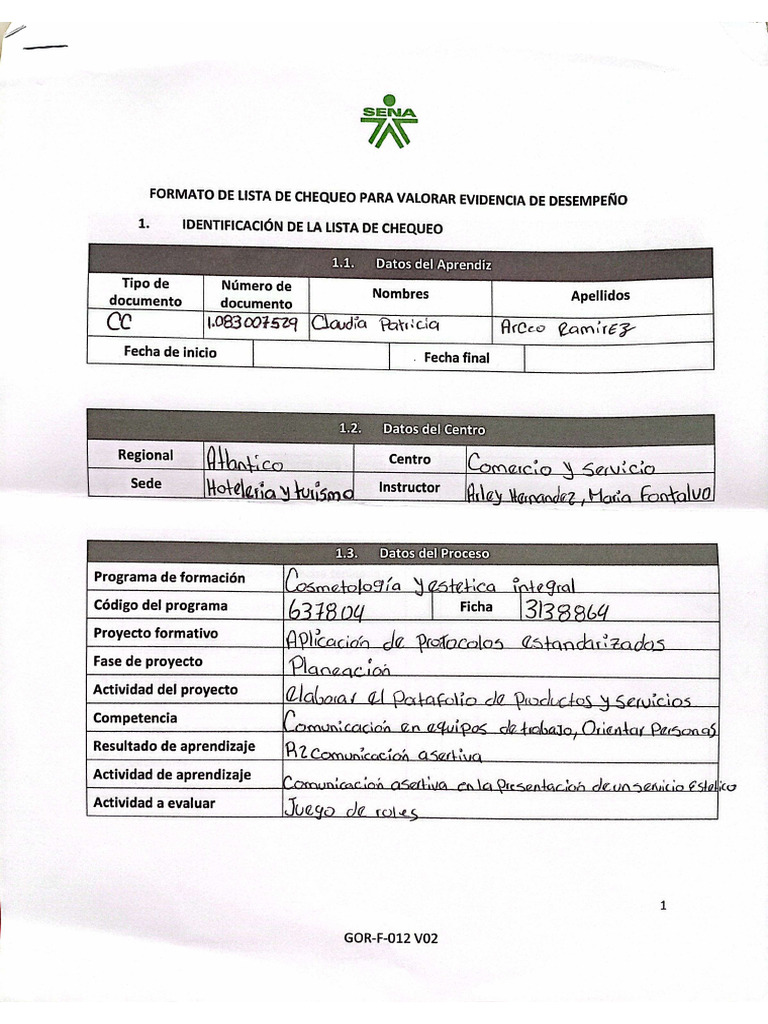 SENA
FORMATO DE LISTA DE CHEQUEO PARA VALORAR EVIDENCIA DE DESEMPEÑO
1. IDENTIFICACIÓN DE LA LISTA DE CHEQUEO
1.1. Datos del Aprendiz
Tipo de documento Número de documento Nombres Apellidos
CC 1.083007529 Claudia Patricia Arceo Ramirez
Fecha de inicio Fecha final
1.2. Datos del Centro
Regional Atlantico Centro Comercio y servicio
Sede Hoteleria y turismo Instructor Arley Hernandez, Maria Fontalvo
1.3. Datos del Proceso
Programa de formación Cosmetología y estetica integral
Código del programa 637804 Ficha 3138864
Proyecto formativo Aplicación de protocolos estandarizados
Fase de proyecto Planeación
Actividad del proyecto elaborar el Portafolio de Productos y servicios
Competencia Comunicación en equipos de trabajo, Orientar Personas
Resultado de aprendizaje R2 comunicación asertiva
Actividad de aprendizaje Comunicación asertiva en la Presentación de un servicio Estetico
Actividad a evaluar Juego de roles
1
GOR-F-012 V02